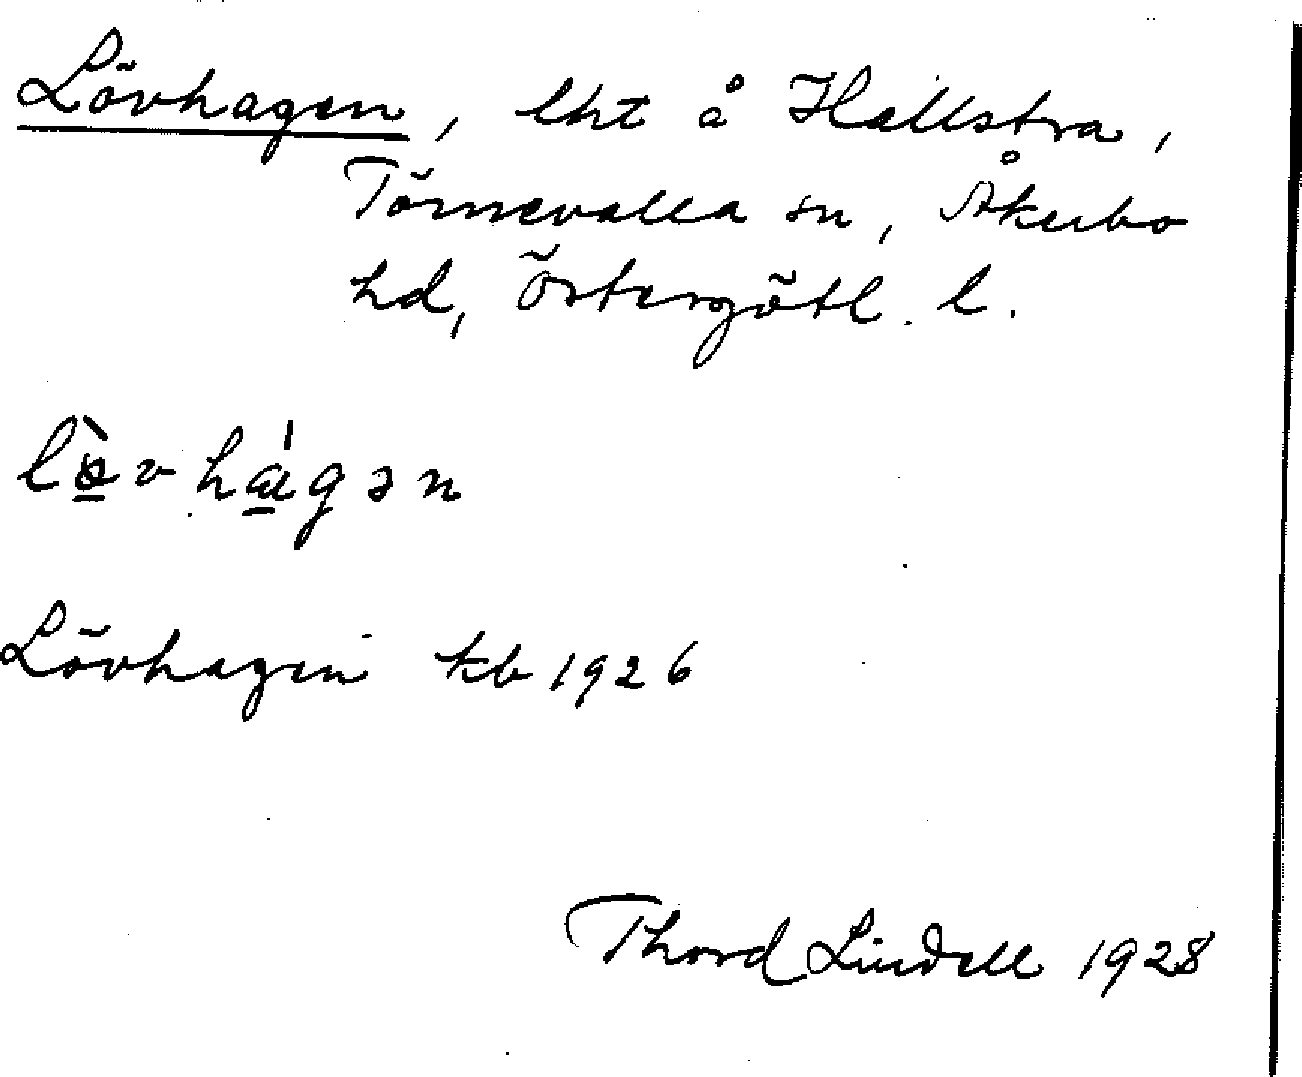 Lövhagen, lht å Hällstra,
Törnevalla sn, Åkerbo
hd, Östergötl. l.
lø̀vhágən
Lövhagen kb 1926
Thord Lindell 1928